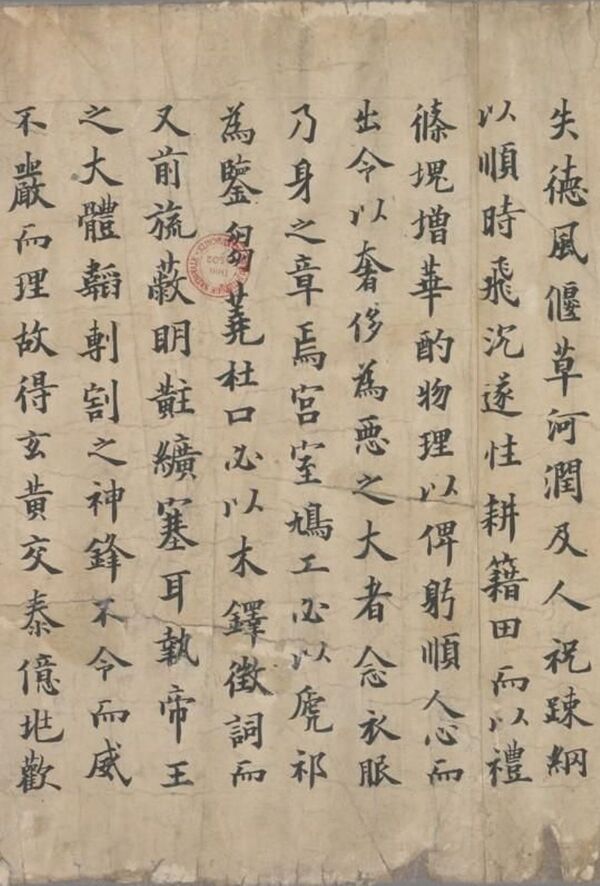 失德風偃草河潤及人祝踈綱
以順時飛沉遂性耕籍田而以禮
篠塊增華酌物理以俾躬順人心而
出令以奢侈為惡之大者念衣服
乃身之章焉宮室鳩工必以虒祁
為鑒芻蕘杜口必以木鐸徵詞而
又前旒蔽明黈纊塞耳執帝王
之大體韜剸割之神鋒不令而威
不嚴而理故得玄黃交泰億兆歡